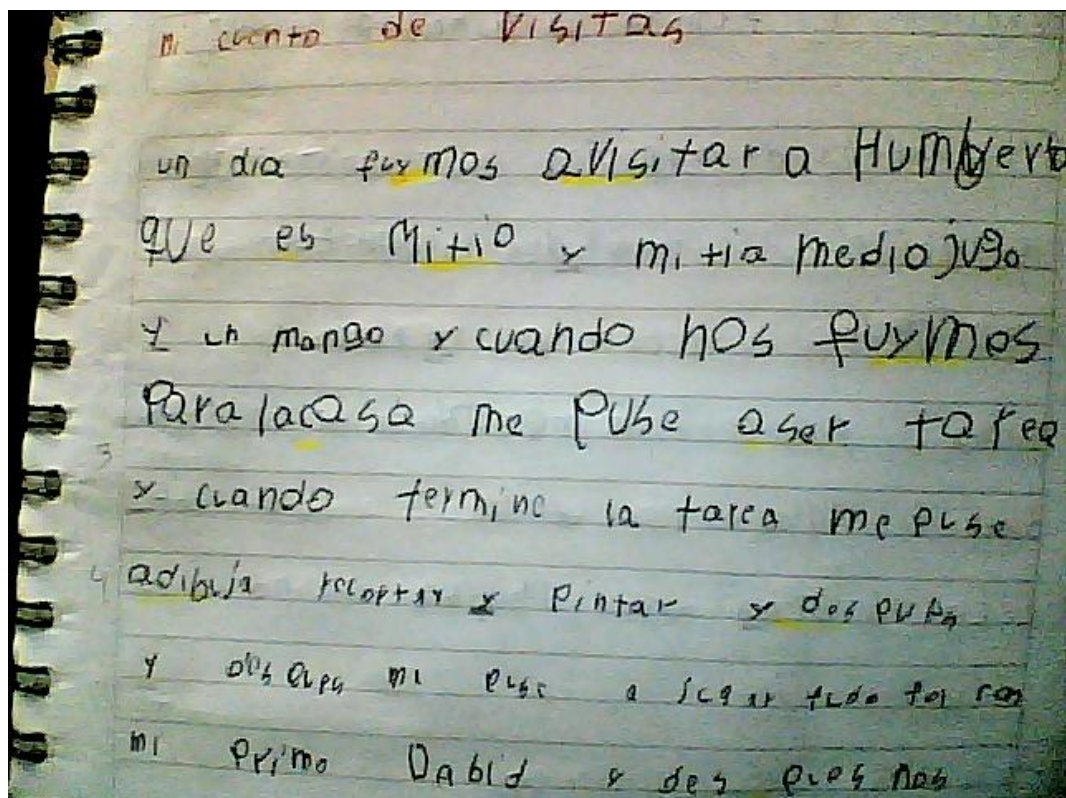 mi cuento de VisiTas
un dia fuymos avisitar a Humberto
que es Mitio y mi tia mediojugo
y un mango y cuando nos fuymos
Para lacasa me puse aser tarea
y cuando termine la tarea me puse
adibuja recortar y Pintar y despues
y despues mi puse a jugar con
mi Primo Dabid y des pues nos